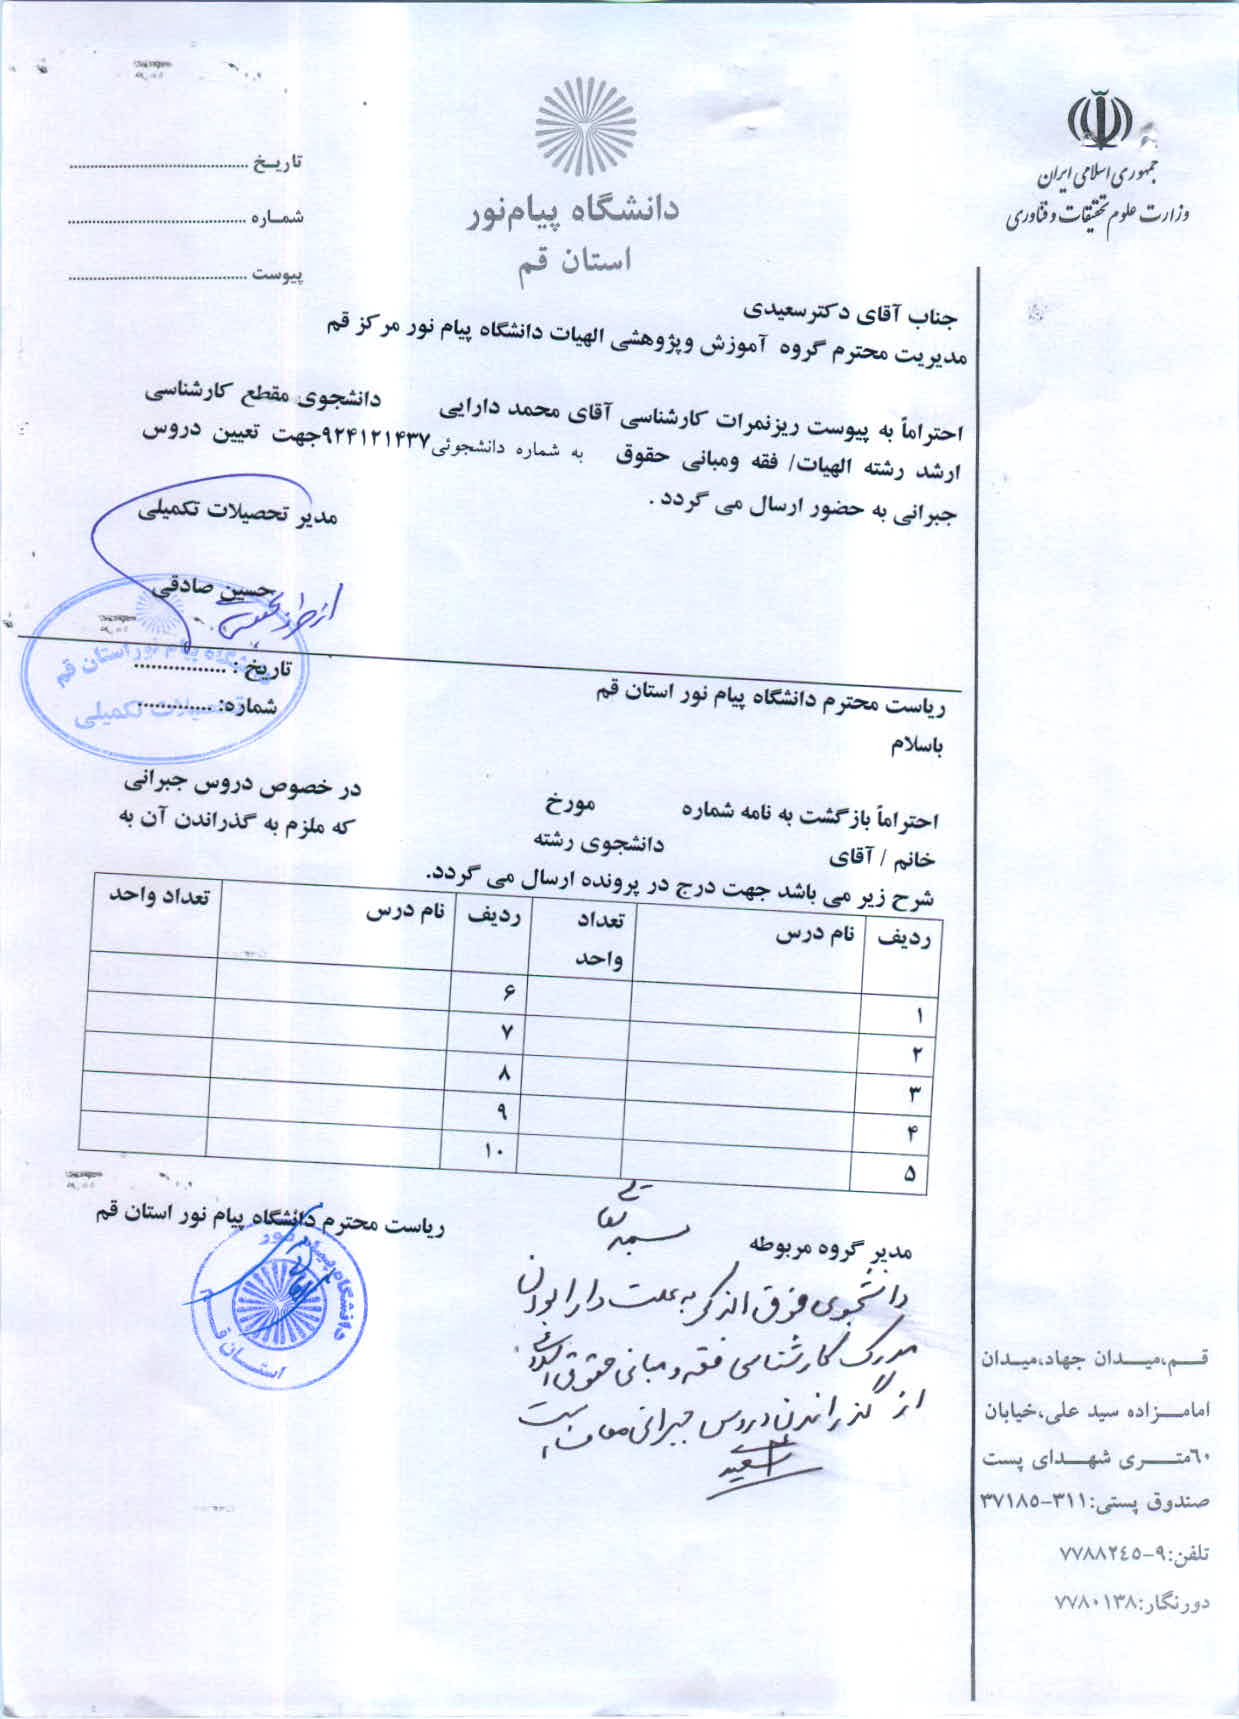 جمهوری اسلامی ایران
وزارت علوم تحقیقات و فناوری
دانشگاه پیام‌نور
استان قم
تاریـخ ..........................................
شمـاره ..........................................
پیوست ..........................................
جناب آقای دکترسعیدی
مدیریت محترم گروه آموزش وپژوهشی الهیات دانشگاه پیام نور مرکز قم
احتراماً به پیوست ریزنمرات کارشناسی آقای محمد دارایی دانشجوی مقطع کارشناسی
ارشد رشته الهیات/ فقه ومبانی حقوق به شماره دانشجوئی ۹۲۴۱۲۱۴۳۷جهت تعیین دروس
جبرانی به حضور ارسال می گردد .
مدیر تحصیلات تکمیلی
حسین صادقی
از طرف
دانشگاه پیام نور استان قم
تحصیلات تکمیلی
تاریخ : ................
شماره: .............
ریاست محترم دانشگاه پیام نور استان قم
باسلام
احتراماً بازگشت به نامه شماره مورخ در خصوص دروس جبرانی
خانم / آقای دانشجوی رشته که ملزم به گذراندن آن به
شرح زیر می باشد جهت درج در پرونده ارسال می گردد.
ردیف نام درس تعداد واحد ردیف نام درس تعداد واحد
۱ ۶
۲ ۷
۳ ۸
۴ ۹
۵ ۱۰
مدیر گروه مربوطه
ریاست محترم دانشگاه پیام نور استان قم
دانشگاه پیام نور
استان قم
دانشجوی فوق الذکر به علت دارا بودن
مدرک کارشناسی فقه و مبانی حقوق اسلامی
از گذراندن دروس جبرانی معاف است
سعیدی
قــم،میــدان جهاد،میـدان
امامــزاده سید علی،خیابان
٦٠متــری شهــدای پست
صندوق پستی:۳۱۱-۳۷۱۸۵
تلفن:۹-۷۷۸۸۲٤٥
دورنگار:۷۷۸۰۱۳۸